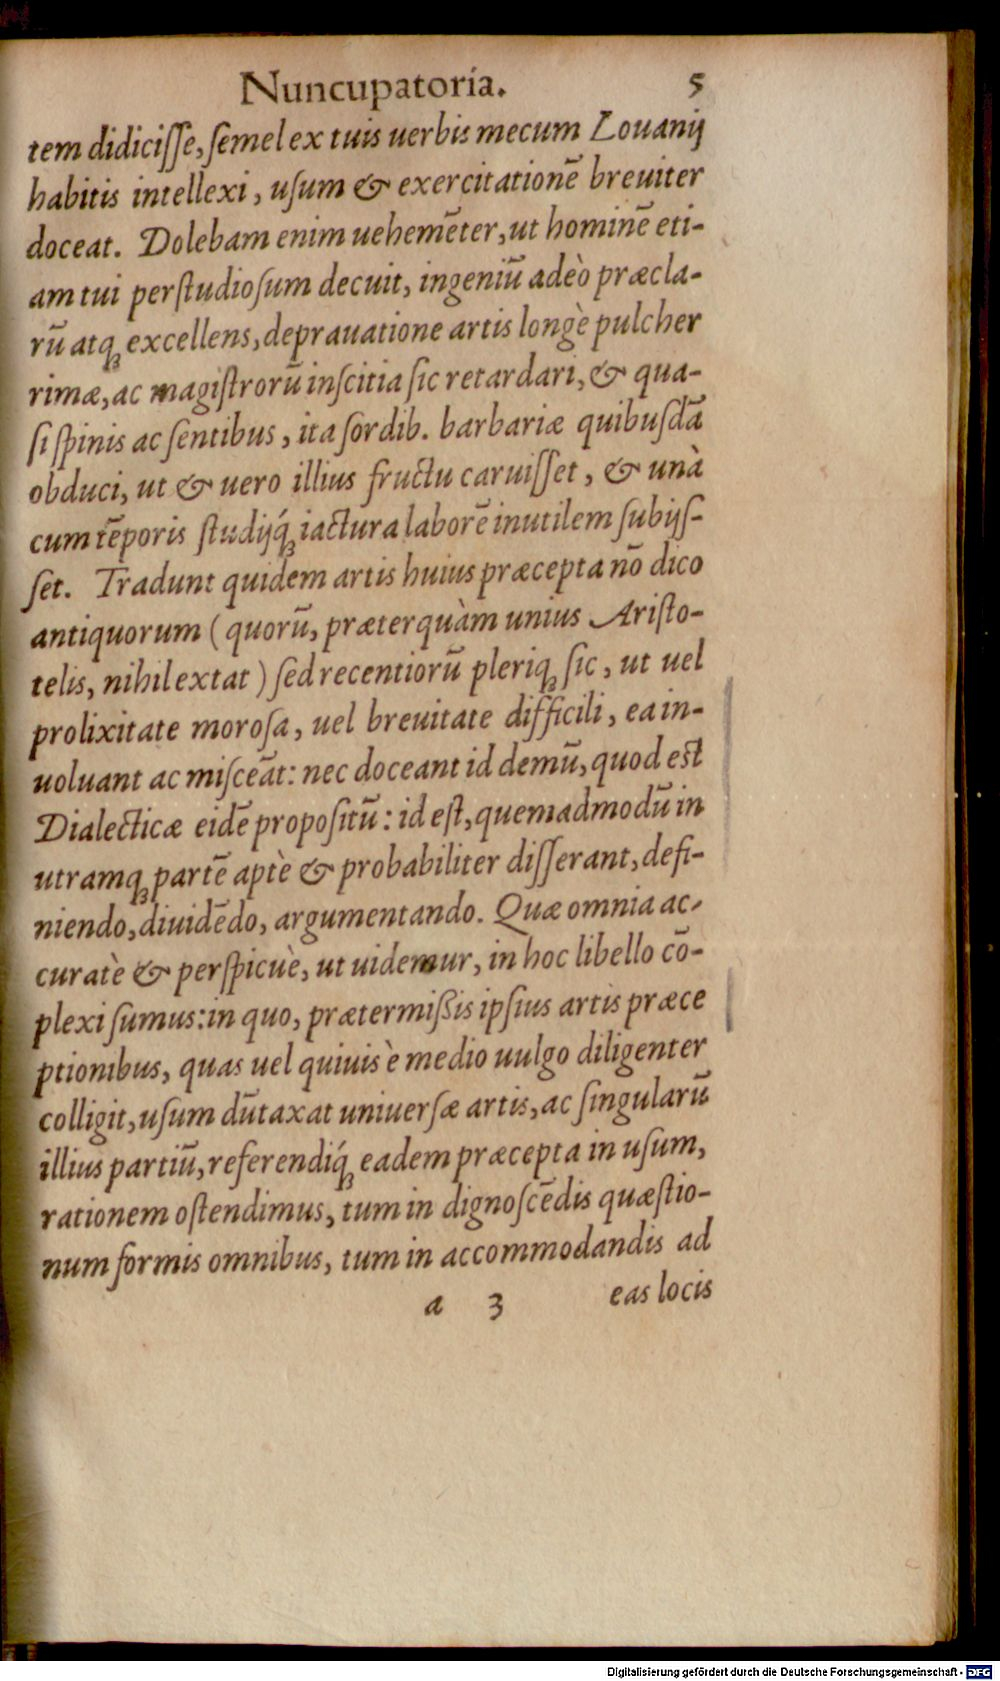 Nuncupatoria. 5
tem didiciſſe, ſemel ex tuis uerbis mecum Louanij
habitis intellexi, uſum & exercitationē breuiter
doceat. Dolebam enim uehemēter, ut hominē eti-
am tui perſtudioſum decuit, ingeniū adeò præcla-
rū atq́ꝫ excellens, deprauatione artis longè pulcher
rimæ, ac magiſtrorū inſcitia ſic retardari, & qua-
ſi ſpinis ac ſentibus, ita ſordib. barbariæ quibuſdā
obduci, ut & uero illius fructu caruiſſet, & unà
cum tēporis ſtudijq́ꝫ iactura laborē inutilem ſubijſ-
ſet. Tradunt quidem artis huius præcepta nō dico
antiquorum (quorū, præterquàm unius Ariſto-
telis, nihil extat) ſed recentiorū pleriqꝫ ſic, ut uel
prolixitate moroſa, uel breuitate difficili, ea in-
uoluant ac miſceāt: nec doceant id demū, quod est
Dialecticæ eidē propoſitū: id eſt, quemadmodū in
utramqꝫ partē aptè & probabiliter diſſerant, defi-
niendo, diuidēdo, argumentando. Quæ omnia ac-
curatè & perſpicuè, ut uidemur, in hoc libello cō-
plexi ſumus: in quo, prætermiſsis ipſius artis præce
ptionibus, quas uel quiuis è medio uulgo diligenter
colligit, uſum dūtaxat uniuerſæ artis, ac ſingularū
illius partiū, referendiq́ꝫ eadem præcepta in uſum,
rationem oſtendimus, tum in dignoſcēdis quæſtio-
num formis omnibus, tum in accommodandis ad
a 3 eas locis
Digitalisierung gefördert durch die Deutsche Forschungsgemeinschaft - DFG